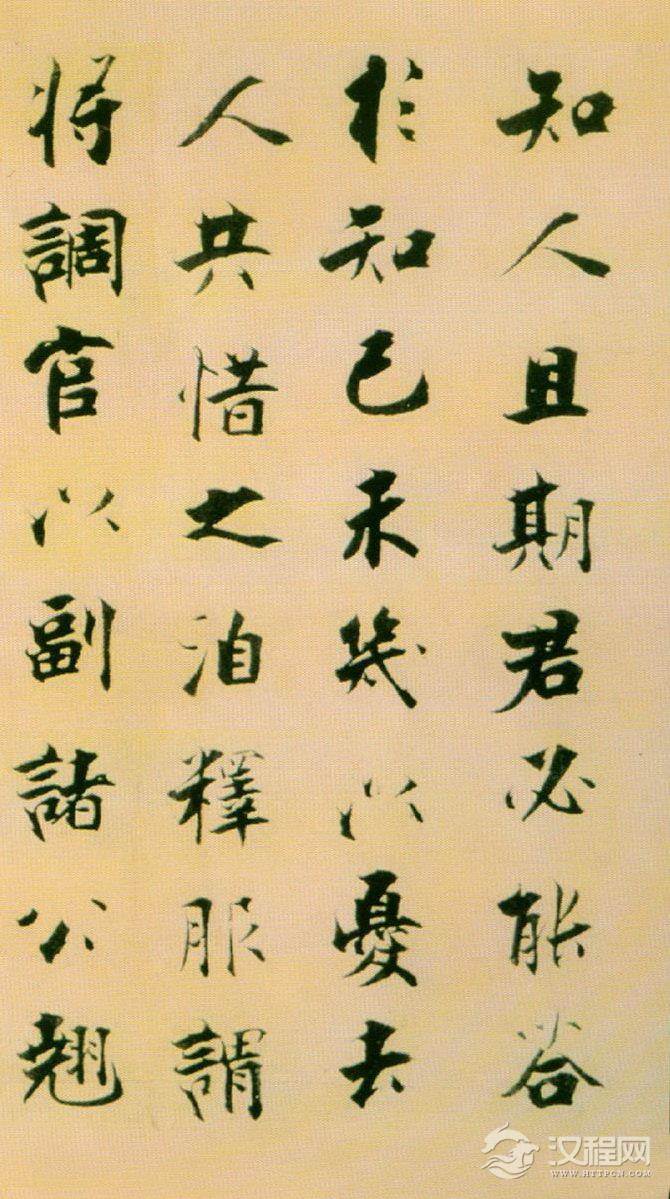 知人且期君必能谷
於知己未幾以憂去
人共惜之洎釋服謂
将調官以副諸公翘
汉程网
WWW.HTTPCN.COM